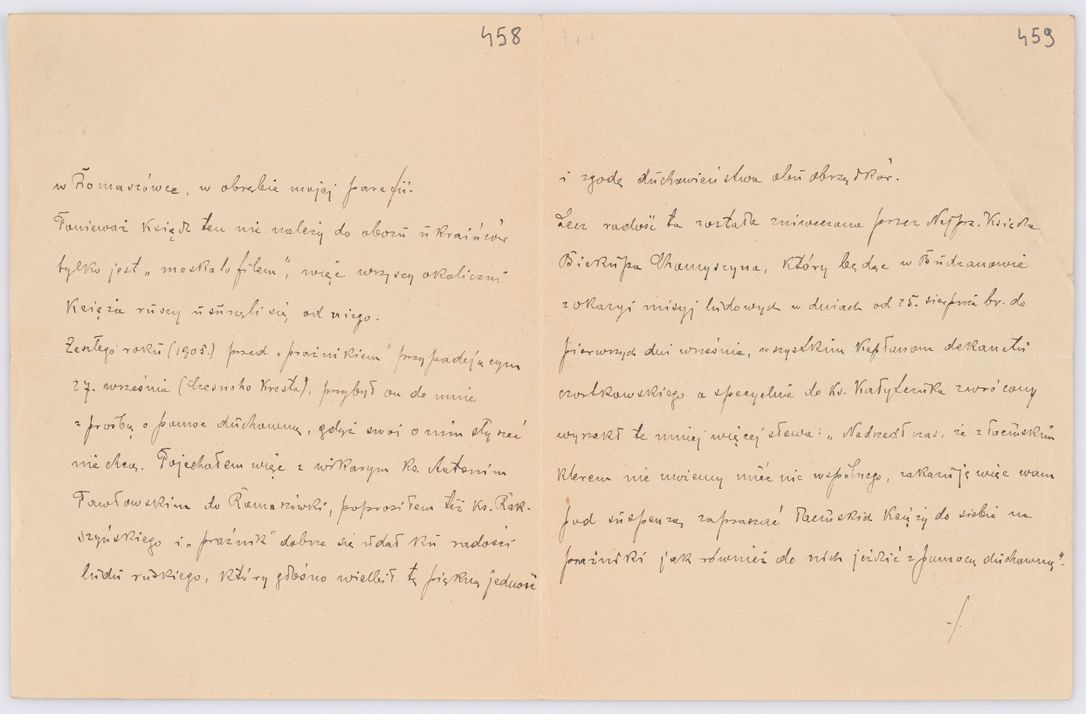 458
w Romaszówce, w obrębie mojej parafii.
Ponieważ Ksiądz ten nie należy do obozu ukraińców
tylko jest „moskalofilem", więc wszyscy okoliczni
Księża ruscy usunęli się od niego.
Zeszłego roku (1905.) przed „praźnikiem" przypadającym
27. września (Czesnoho Kresta), przybył on do mnie
z prośbą o pomoc duchowną, gdyż swoi o nim słyszeć
nie chcą. Pojechałem więc z wikarym ks. Antonim
Pawłowskim do Romaszówki, poprosiłem też ks.
szyńskiego i „praźnik" dobrze się udał ku radości
ludu ruskiego, który głośno wielbił tę piękną jedność
459
i zgodę duchowieństwa obu obrządków.
Lecz radość ta została zniweczona przez Najprz. Księdza
Biskupa Chomyszyna, który będąc w Budzanowie
z okazyi misyj ludowych w dniach od 25. sierpnia br. do
pierwszych dni września, wszystkim Kapłanom dekanatu
czortkowskiego a specyalnie do Ks. zwrócony
wyrzekł te mniej więcej słowa: „Nadszedł czas, że z łacińskim
klerem nie możemy mieć nic wspólnego, zakazuję więc wam
pod suspenzą zapraszać łacińskich Księży do siebie na
praźniki jak również do nich jeździć z pomocą duchowną".